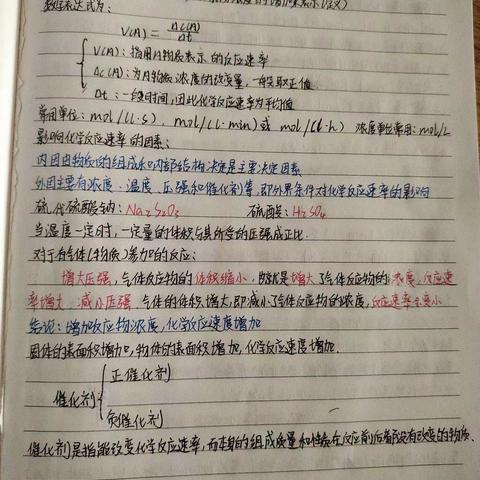 数值表达式为:
V(A) = Δc(A)/Δt
V(A): 指用A物质表示的反应速率
Δc(A): 为A物质浓度的改变量,一般取正值
Δt: 一段时间,因此化学反应速率为平均值
常用单位: mol/(L·s), mol/(L·min)或 mol/(L·h) 浓度单位常用: mol/L
影响化学反应速率的因素:
内因由物质的组成和内部结构决定是主要决定因素
外因主要有浓度、温度、压强和催化剂等,即外界条件对化学反应速率的影响
硫代硫酸钠: Na₂S₂O₃ 硫酸: H₂SO₄
当温度一定时,一定量的体积与其所受的压强成正比.
对于有气体(物质)参加的反应:
增大压强,气体反应物的体积缩小,就是增大了气体反应物的浓度,反应速
率增大. 减小压强,气体的体积增大,即减小了气体反应物的浓度,反应速率会变小
结论: 增加反应物浓度,化学反应速度增加
固体的表面积增加,物体的表面积增加,化学反应速度增加.
催化剂 正催化剂
负催化剂
催化剂是指能改变化学反应速率,而本身的组成质量和性质在反应前后都没有改变的物质.